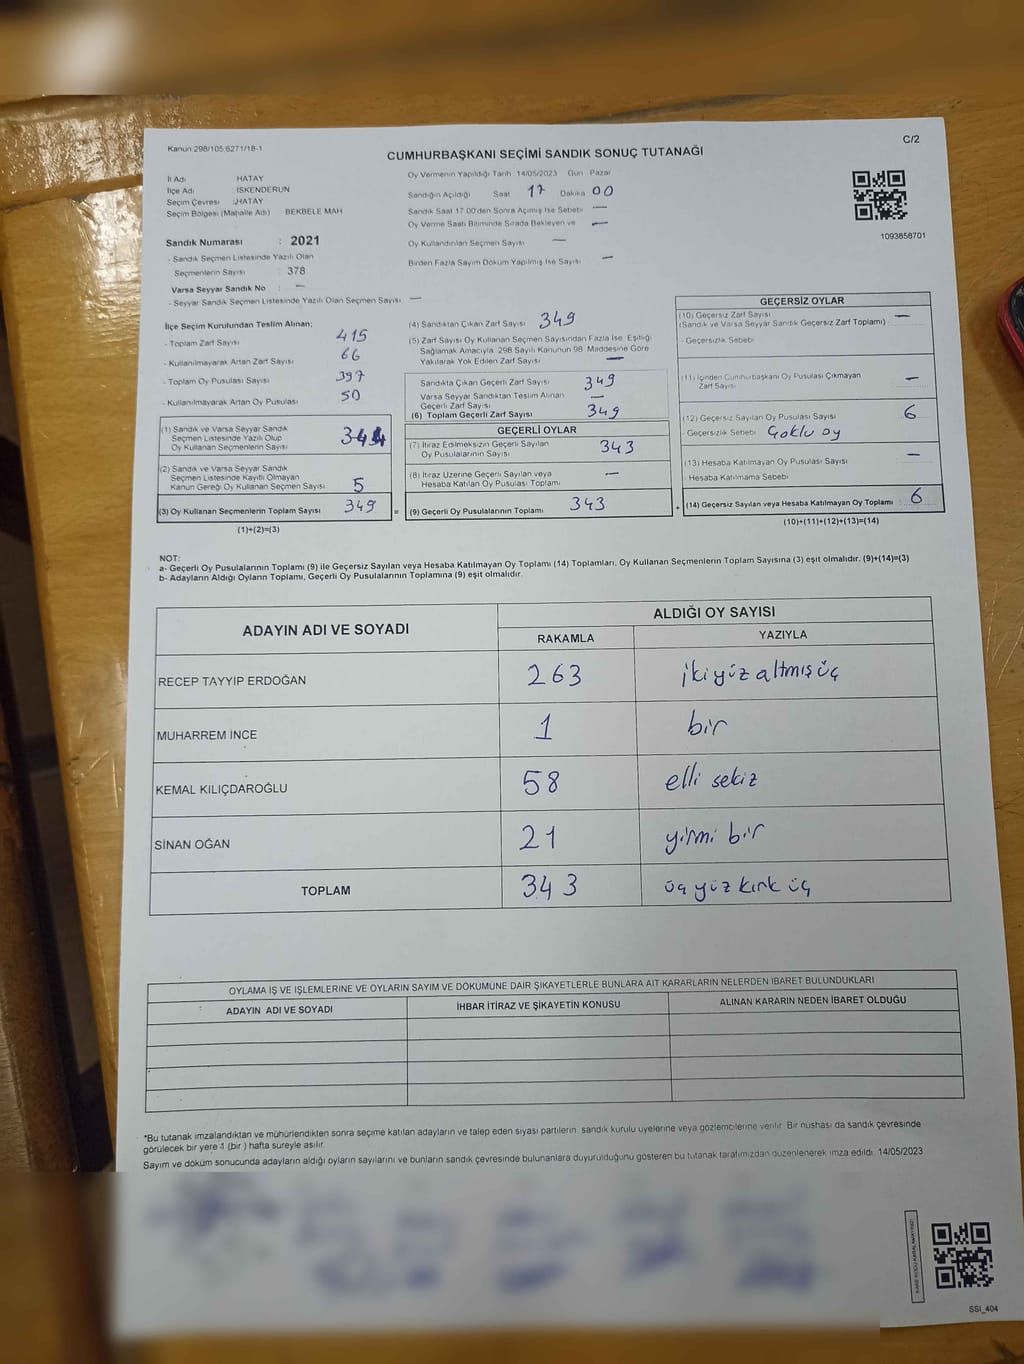 Kanun:298/105.6271/18-1
C/2
CUMHURBAŞKANI SEÇİMİ SANDIK SONUÇ TUTANAĞI
İl Adı HATAY
İlçe Adı İSKENDERUN
Seçim Çevresi :HATAY
Seçim Bölgesi (Mahalle Adı) BEKBELE MAH
Sandık Numarası : 2021
- Sandık Seçmen Listesinde Yazılı Olan
Seçmenlerin Sayısı : 378
Varsa Seyyar Sandık No : —
- Seyyar Sandık Seçmen Listesinde Yazılı Olan Seçmen Sayısı: —
Oy Vermenin Yapıldığı Tarih: 14/05/2023 Gün: Pazar
Sandığın Açıldığı Saat 17 Dakika 00
Sandık Saat 17:00'den Sonra Açımış İse Sebebi —
Oy Verme Saati Bitiminde Sırada Bekleyen ve —
Oy Kullandırılan Seçmen Sayısı —
Birden Fazla Sayım Döküm Yapılmış İse Sayısı —
1093858701
İlçe Seçim Kurulundan Teslim Alınan;
- Toplam Zarf Sayısı 415
- Kullanılmayarak Artan Zarf Sayısı 66
- Toplam Oy Pusulası Sayısı 397
- Kullanılmayarak Artan Oy Pusulası 50
(1) Sandık ve Varsa Seyyar Sandık
Seçmen Listesinde Yazılı Olup
Oy Kullanan Seçmenlerin Sayısı 344
(2) Sandık ve Varsa Seyyar Sandık
Seçmen Listesinde Kayıtlı Olmayan
Kanun Gereği Oy Kullanan Seçmen Sayısı 5
(3) Oy Kullanan Seçmenlerin Toplam Sayısı 349
(1)+(2)=(3)
(4) Sandıktan Çıkan Zarf Sayısı 349
(5) Zarf Sayısı Oy Kullanan Seçmen Sayısından Fazla İse, Eşitliği
Sağlamak Amacıyla 298 Sayılı Kanunun 98. Maddesine Göre
Yakılarak Yok Edilen Zarf Sayısı —
Sandıkta Çıkan Geçerli Zarf Sayısı 349
Varsa Seyyar Sandıktan Teslim Alınan
Geçerli Zarf Sayısı —
(6) Toplam Geçerli Zarf Sayısı 349
GEÇERLİ OYLAR
(7) İtiraz Edilmeksizin Geçerli Sayılan
Oy Pusulalarının Sayısı 343
(8) İtiraz Üzerine Geçerli Sayılan veya
Hesaba Katılan Oy Pusulası Toplamı —
= (9) Geçerli Oy Pusulalarının Toplamı 343 +
GEÇERSİZ OYLAR
(10) Geçersiz Zarf Sayısı —
(Sandık ve Varsa Seyyar Sandık Geçersiz Zarf Toplamı)
- Geçersizlik Sebebi
(11) İçinden Cumhurbaşkanı Oy Pusulası Çıkmayan
Zarf Sayısı —
(12) Geçersiz Sayılan Oy Pusulası Sayısı 6
- Geçersizlik Sebebi Çoklu oy
(13) Hesaba Katılmayan Oy Pusulası Sayısı —
Hesaba Katılmama Sebebi
(14) Geçersiz Sayılan veya Hesaba Katılmayan Oy Toplamı 6
(10)+(11)+(12)+(13)=(14)
NOT:
a- Geçerli Oy Pusulalarının Toplamı (9) ile Geçersiz Sayılan veya Hesaba Katılmayan Oy Toplamı (14) Toplamları, Oy Kullanan Seçmenlerin Toplam Sayısına (3) eşit olmalıdır. (9)+(14)=(3)
b- Adayların Aldığı Oyların Toplamı, Geçerli Oy Pusulalarının Toplamına (9) eşit olmalıdır.
ADAYIN ADI VE SOYADI ALDIĞI OY SAYISI
RAKAMLA YAZIYLA
RECEP TAYYİP ERDOĞAN 263 iki yüz altmış üç
MUHARREM İNCE 1 bir
KEMAL KILIÇDAROĞLU 58 elli sekiz
SİNAN OĞAN 21 yirmi bir
TOPLAM 343 üç yüz kırk üç
OYLAMA İŞ VE İŞLEMLERİNE VE OYLARIN SAYIM VE DÖKÜMÜNE DAİR ŞİKAYETLERLE BUNLARA AİT KARARLARIN NELERDEN İBARET BULUNDUKLARI
ADAYIN ADI VE SOYADI İHBAR İTİRAZ VE ŞİKAYETİN KONUSU ALINAN KARARIN NEDEN İBARET OLDUĞU
*Bu tutanak imzalandıktan ve mühürlendikten sonra seçime katılan adayların ve talep eden siyasi partilerin sandık kurulu üyelerine veya gözlemcilerine verilir. Bir nüshası da sandık çevresinde
görülecek bir yere 1 (bir) hafta süreyle asılır.
Sayım ve döküm sonucunda adayların aldığı oyların sayılarını ve bunların sandık çevresinde bulunanlara duyurulduğunu gösteren bu tutanak tarafımızdan düzenlenerek imza edildi. 14/05/2023
KARE KODU KARALAMAYINIZ!
SSI_404